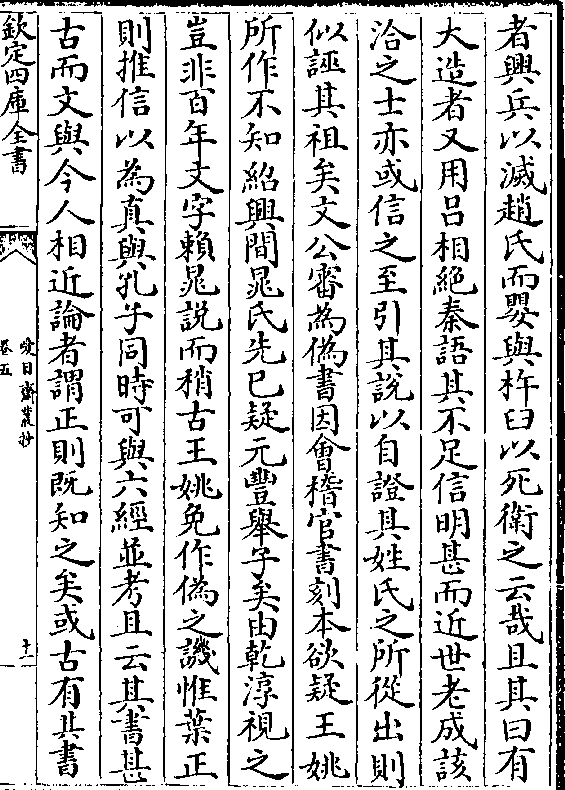 者興兵以滅趙氏而嬰與杵臼以死衛之云哉且其曰有
大造者又用呂相絶秦語其不足信明甚而近世老成該
洽之士亦或信之至引其說以自證其姓氏之所從出則
似誣其祖矣文公審為偽書因會稽官書刻本欲疑王姚
所作不知紹興間晁氏先已疑元豐舉子矣由乾淳視之
豈非百年文字賴晁說而稍古王姚免作偽之譏惟葉正
則推信以為真與孔子同時可與六經並考且云其書甚
古而文與今人相近論者謂正則既知之矣或古有其書
欽定四庫全書
愛日齋叢抄
卷五
十一